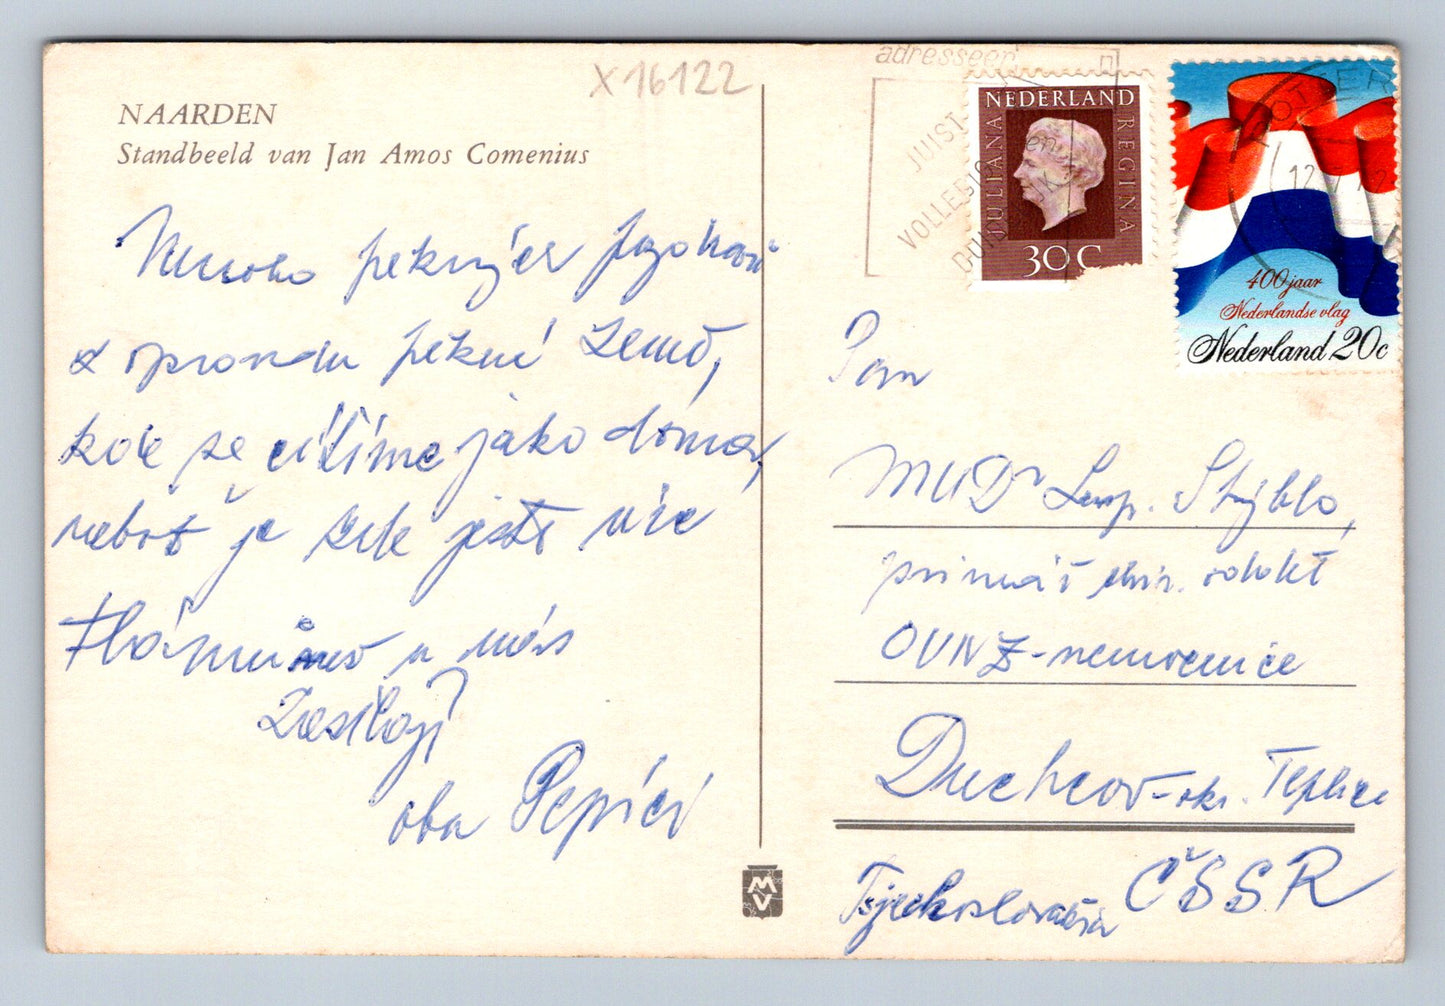 X16122
NAARDEN
Standbeeld van Jan Amos Comenius
Mnoho pěkných pozdravů
z opravdu pěkné země,
kde se cítíme jako doma,
neboť je zde ještě více
než u nás
Zasílají
oba Pepíci
adresseer
JUIST
VOLLEDIG
DUIDELIJK
NEDERLAND
JULIANA
REGINA
30C
400 jaar
Nederlandse vlag
Nederland 20c
ROTTER
Pan
MUDr Stýblo,
primář chir. odděl
OÚNZ-nemocnice
Duchcov-okr. Teplice
Tsjechoslovakia ČSSR
MV